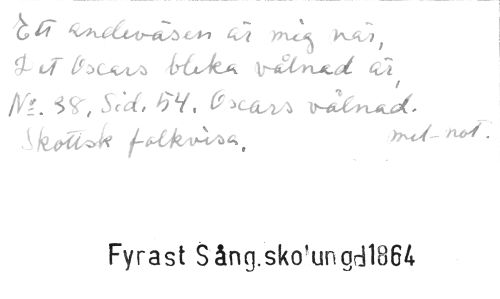 Ett andeväsen är mig när,
Det Oscars bleka vålnad är,
No. 38, Sid. 54. Oscars vålnad.
Skottsk folkvisa. mel-not.
Fyrast Sång.sko'ungd1864